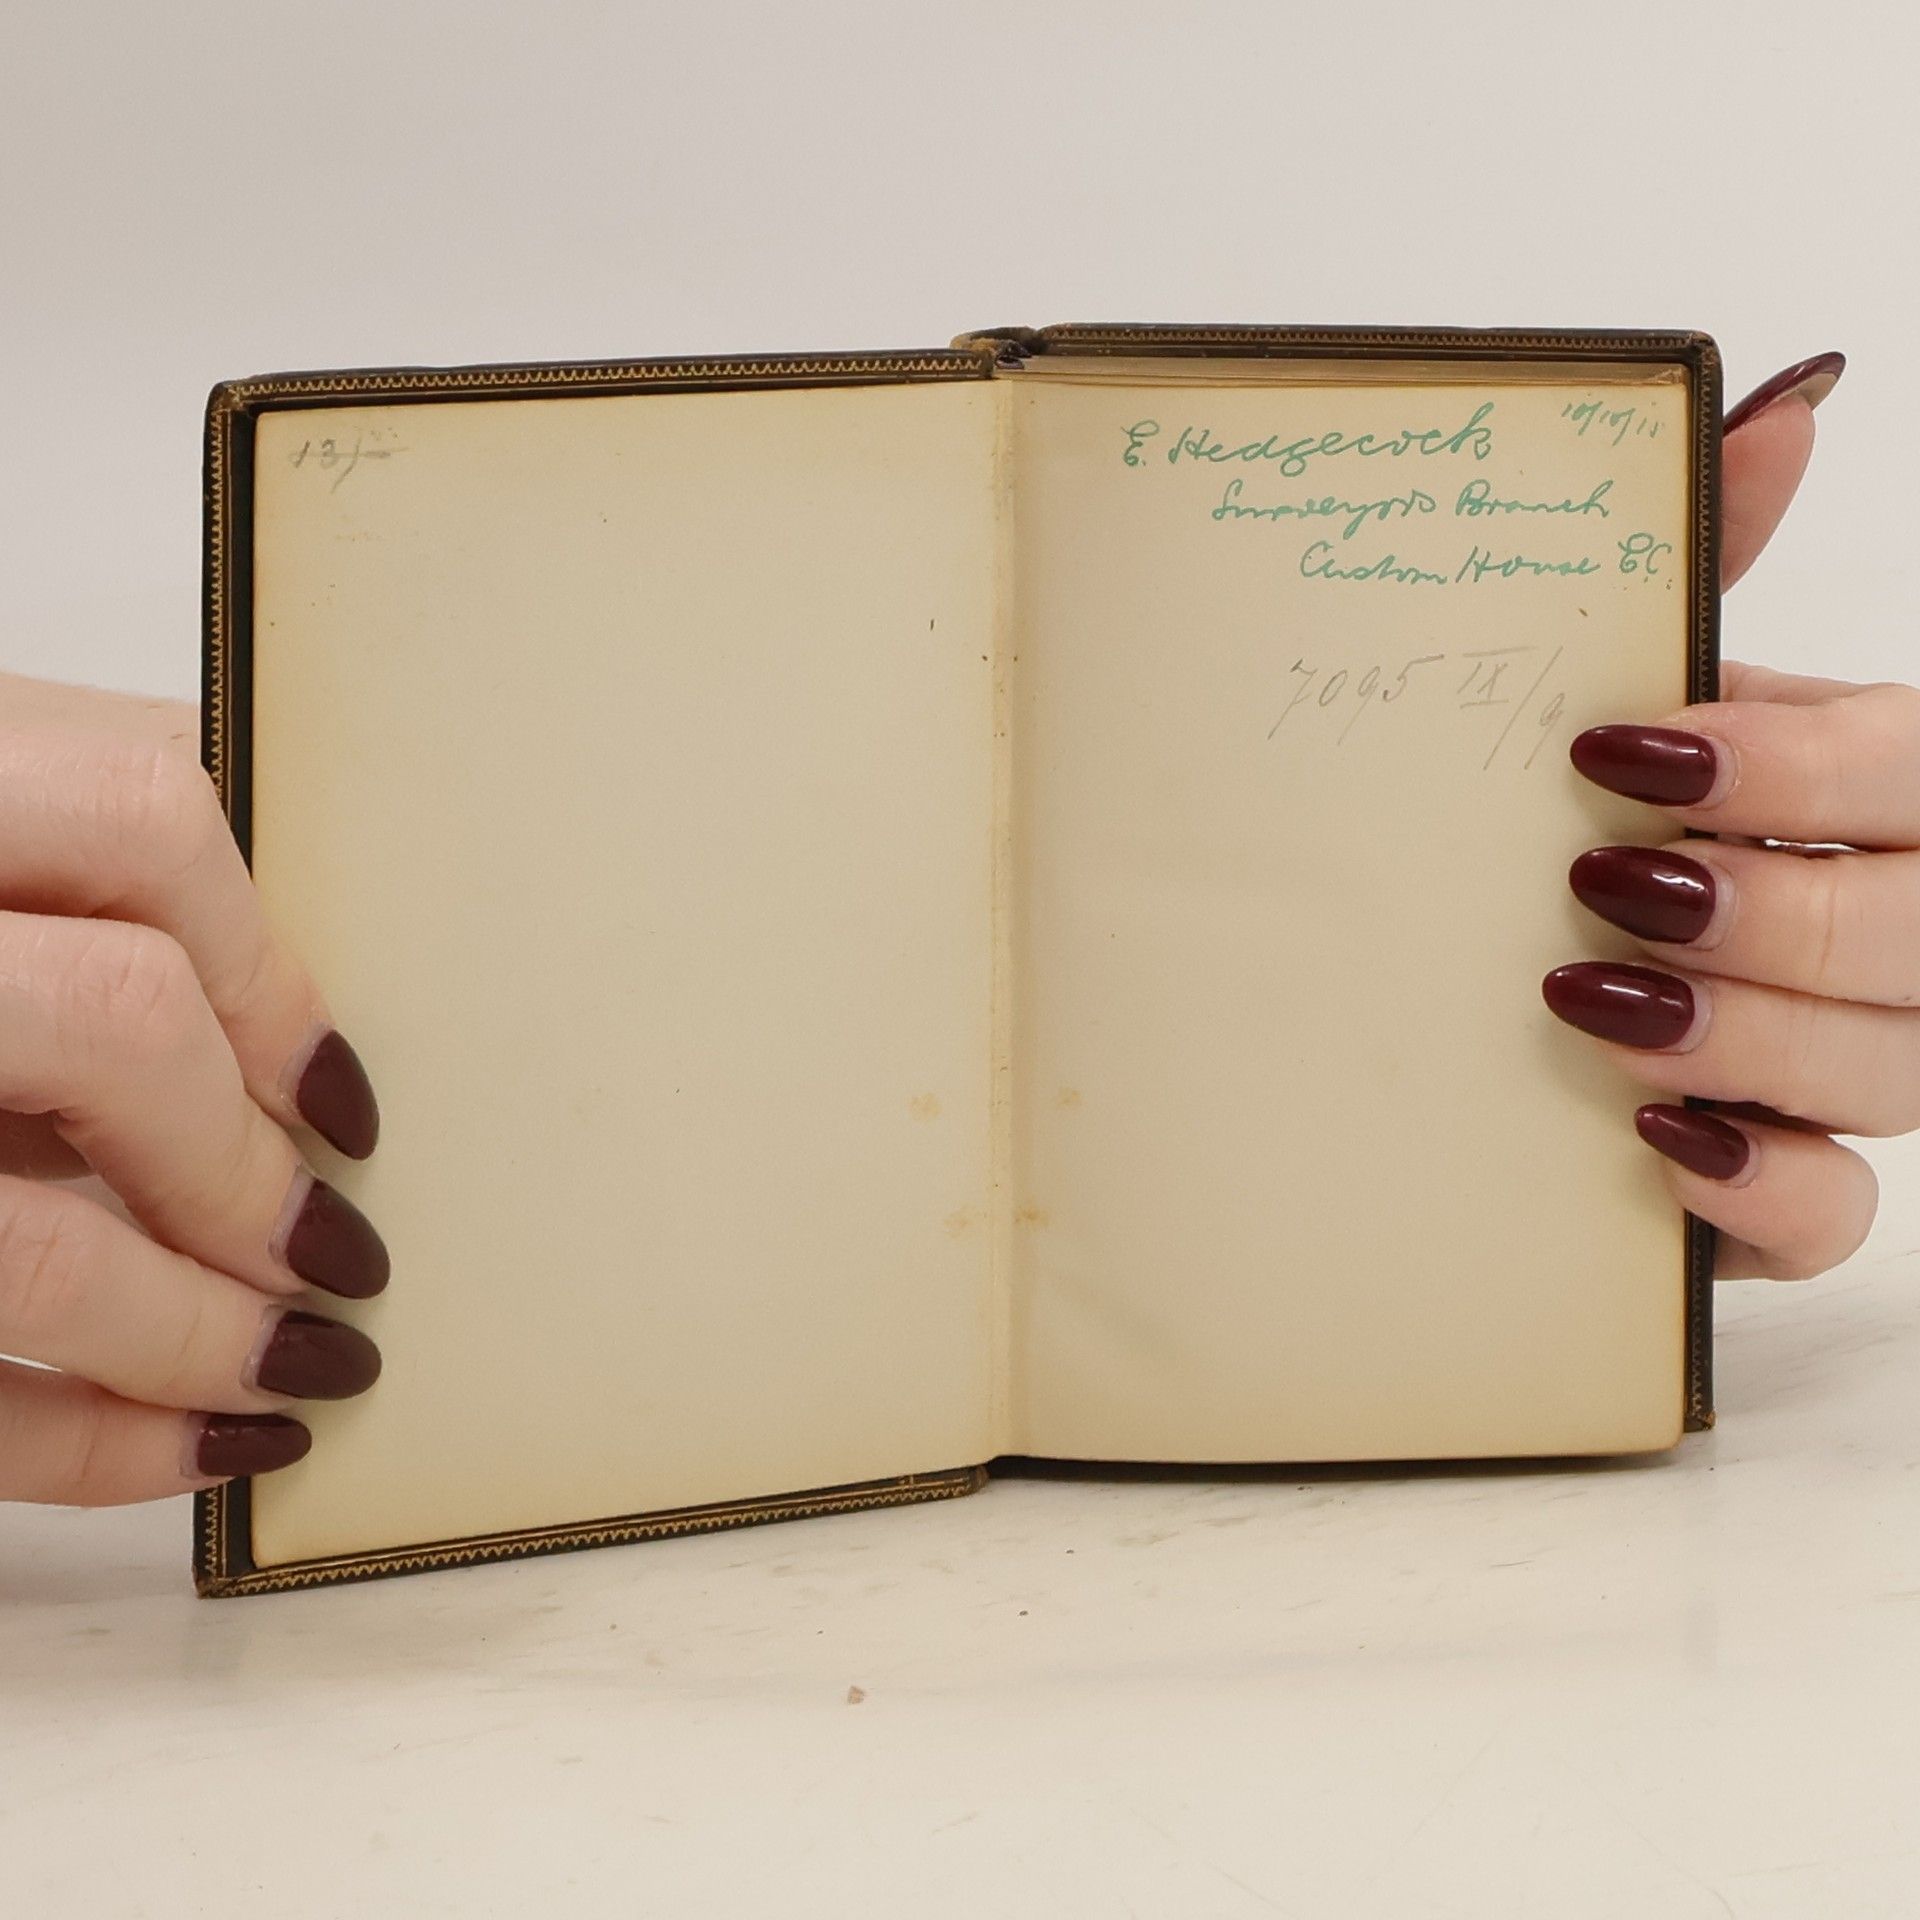 13/-
E. Hedgecock 10/10/15
Surveyors Branch
Custom House E.C.
7095 IX/9